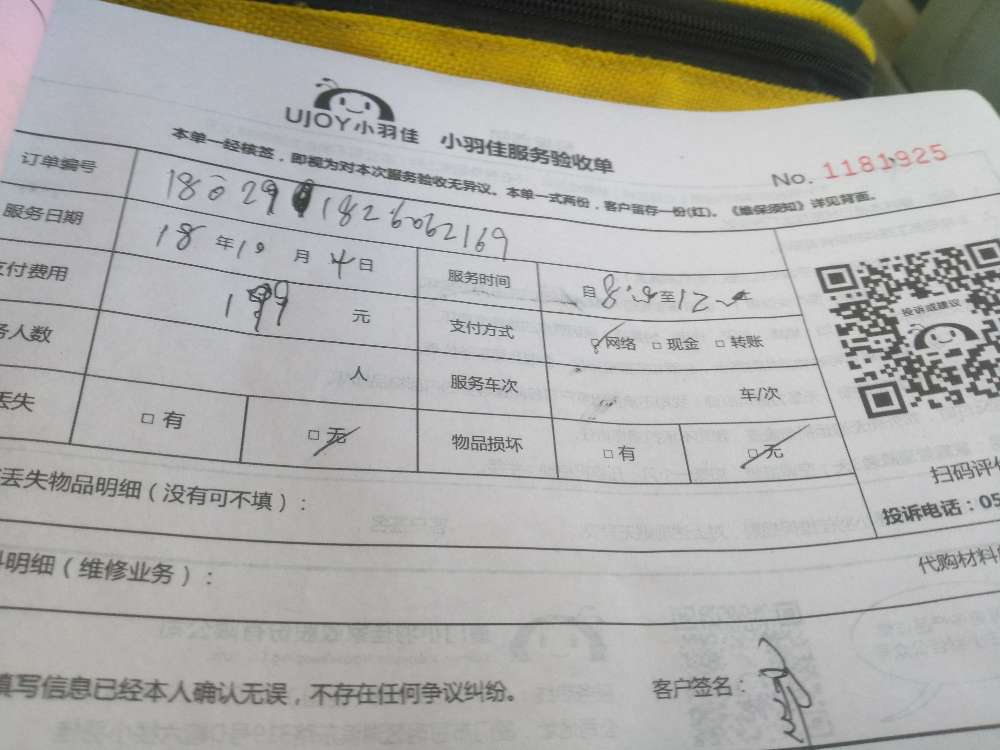 UJOY小羽佳 小羽佳服务验收单
No. 1181925
本单一经核签，即视为对本次服务验收无异议。本单一式两份，客户留存一份(红)。《维保须知》详见背面。
订单编号
服务日期 18 年 10 月 4 日 服务时间 自 8: 至 12
支付费用 199 元 支付方式 网络 □ 现金 □ 转账
务人数 人 服务车次 车/次
丢失 □ 有 □ 无 物品损坏 □ 有 □ 无
投诉或建议
扫码评价
投诉电话：05
丢失物品明细（没有可不填）：
料明细（维修业务）： 代购材料
填写信息已经本人确认无误，不存在任何争议纠纷。 客户签名：